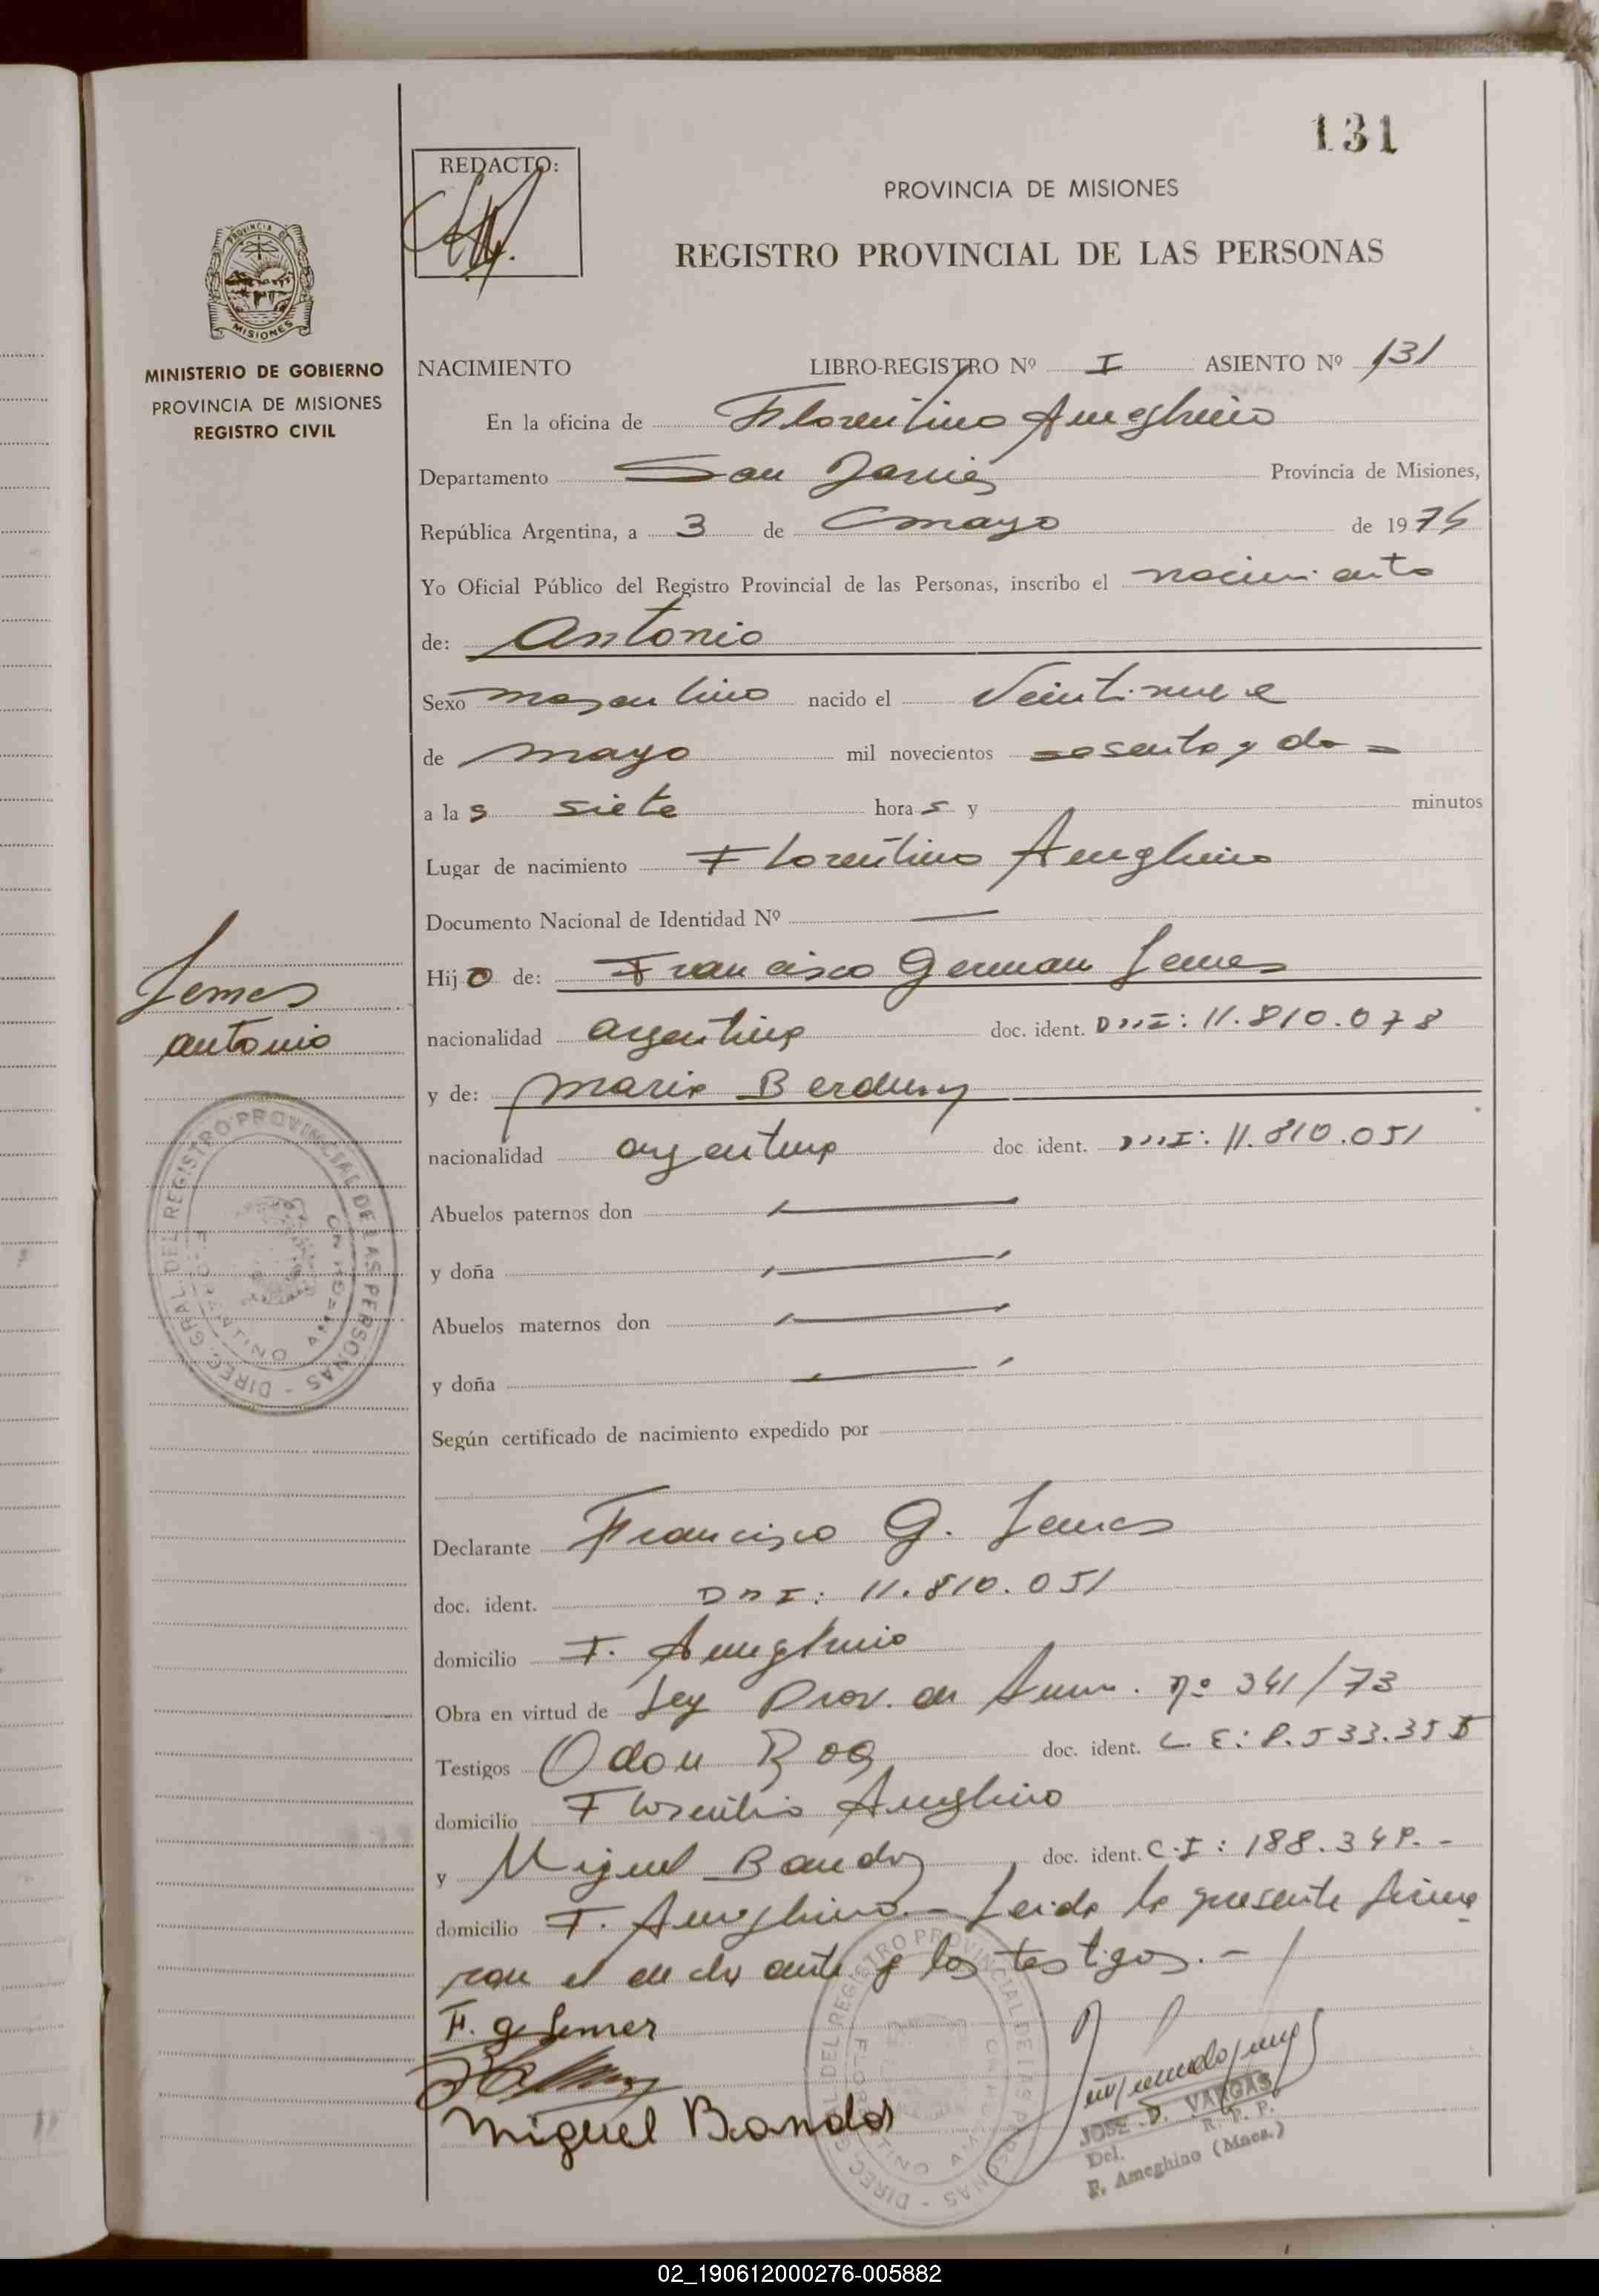 131
REDACTO:
PROVINCIA DE MISIONES
REGISTRO PROVINCIAL DE LAS PERSONAS
PROVINCIA DE
MISIONES
MINISTERIO DE GOBIERNO
PROVINCIA DE MISIONES
REGISTRO CIVIL
NACIMIENTO LIBRO-REGISTRO Nº I ASIENTO Nº 131
En la oficina de Florentino Ameghino
Departamento San Javier Provincia de Misiones,
República Argentina, a 3 de mayo de 1974
Yo Oficial Público del Registro Provincial de las Personas, inscribo el nacimiento
de: Antonio
Sexo masculino nacido el Veintinueve
de mayo mil novecientos sesenta y dos
a las siete horas y minutos
Lugar de nacimiento Florentino Ameghino
Documento Nacional de Identidad Nº —
Hijo de: Francisco German Lemes
nacionalidad argentina doc. ident. DNI: 11.810.078
y de: Maria
nacionalidad argentina doc ident. DNI: 11.810.051
Abuelos paternos don —
y doña —
Abuelos maternos don —
y doña —
Según certificado de nacimiento expedido por
Lemes
Antonio
DIREC. GRAL. DEL REGISTRO PROVINCIAL DE LAS PERSONAS
Declarante Francisco G. Lemes
doc. ident. DNI: 11.810.051
domicilio F. Ameghino
Obra en virtud de Ley Prov. de Amn. nº 341/73
Testigos Odon doc. ident. L.E: 8.533.355
domicilio Florentino Ameghino
y Miguel Bandos doc. ident. C.I: 188.349.-
domicilio F. Ameghino.- Leida la presente firma
ran el declarante y los testigos.-
F. g Lemes
Miguel Bandos
DIREC. GRAL DEL REGISTRO PROVINCIAL DE LAS PERSONAS
JOSE D. VARGAS
Del. R. P. P.
F. Ameghino (Mnes.)
02_190612000276-005882